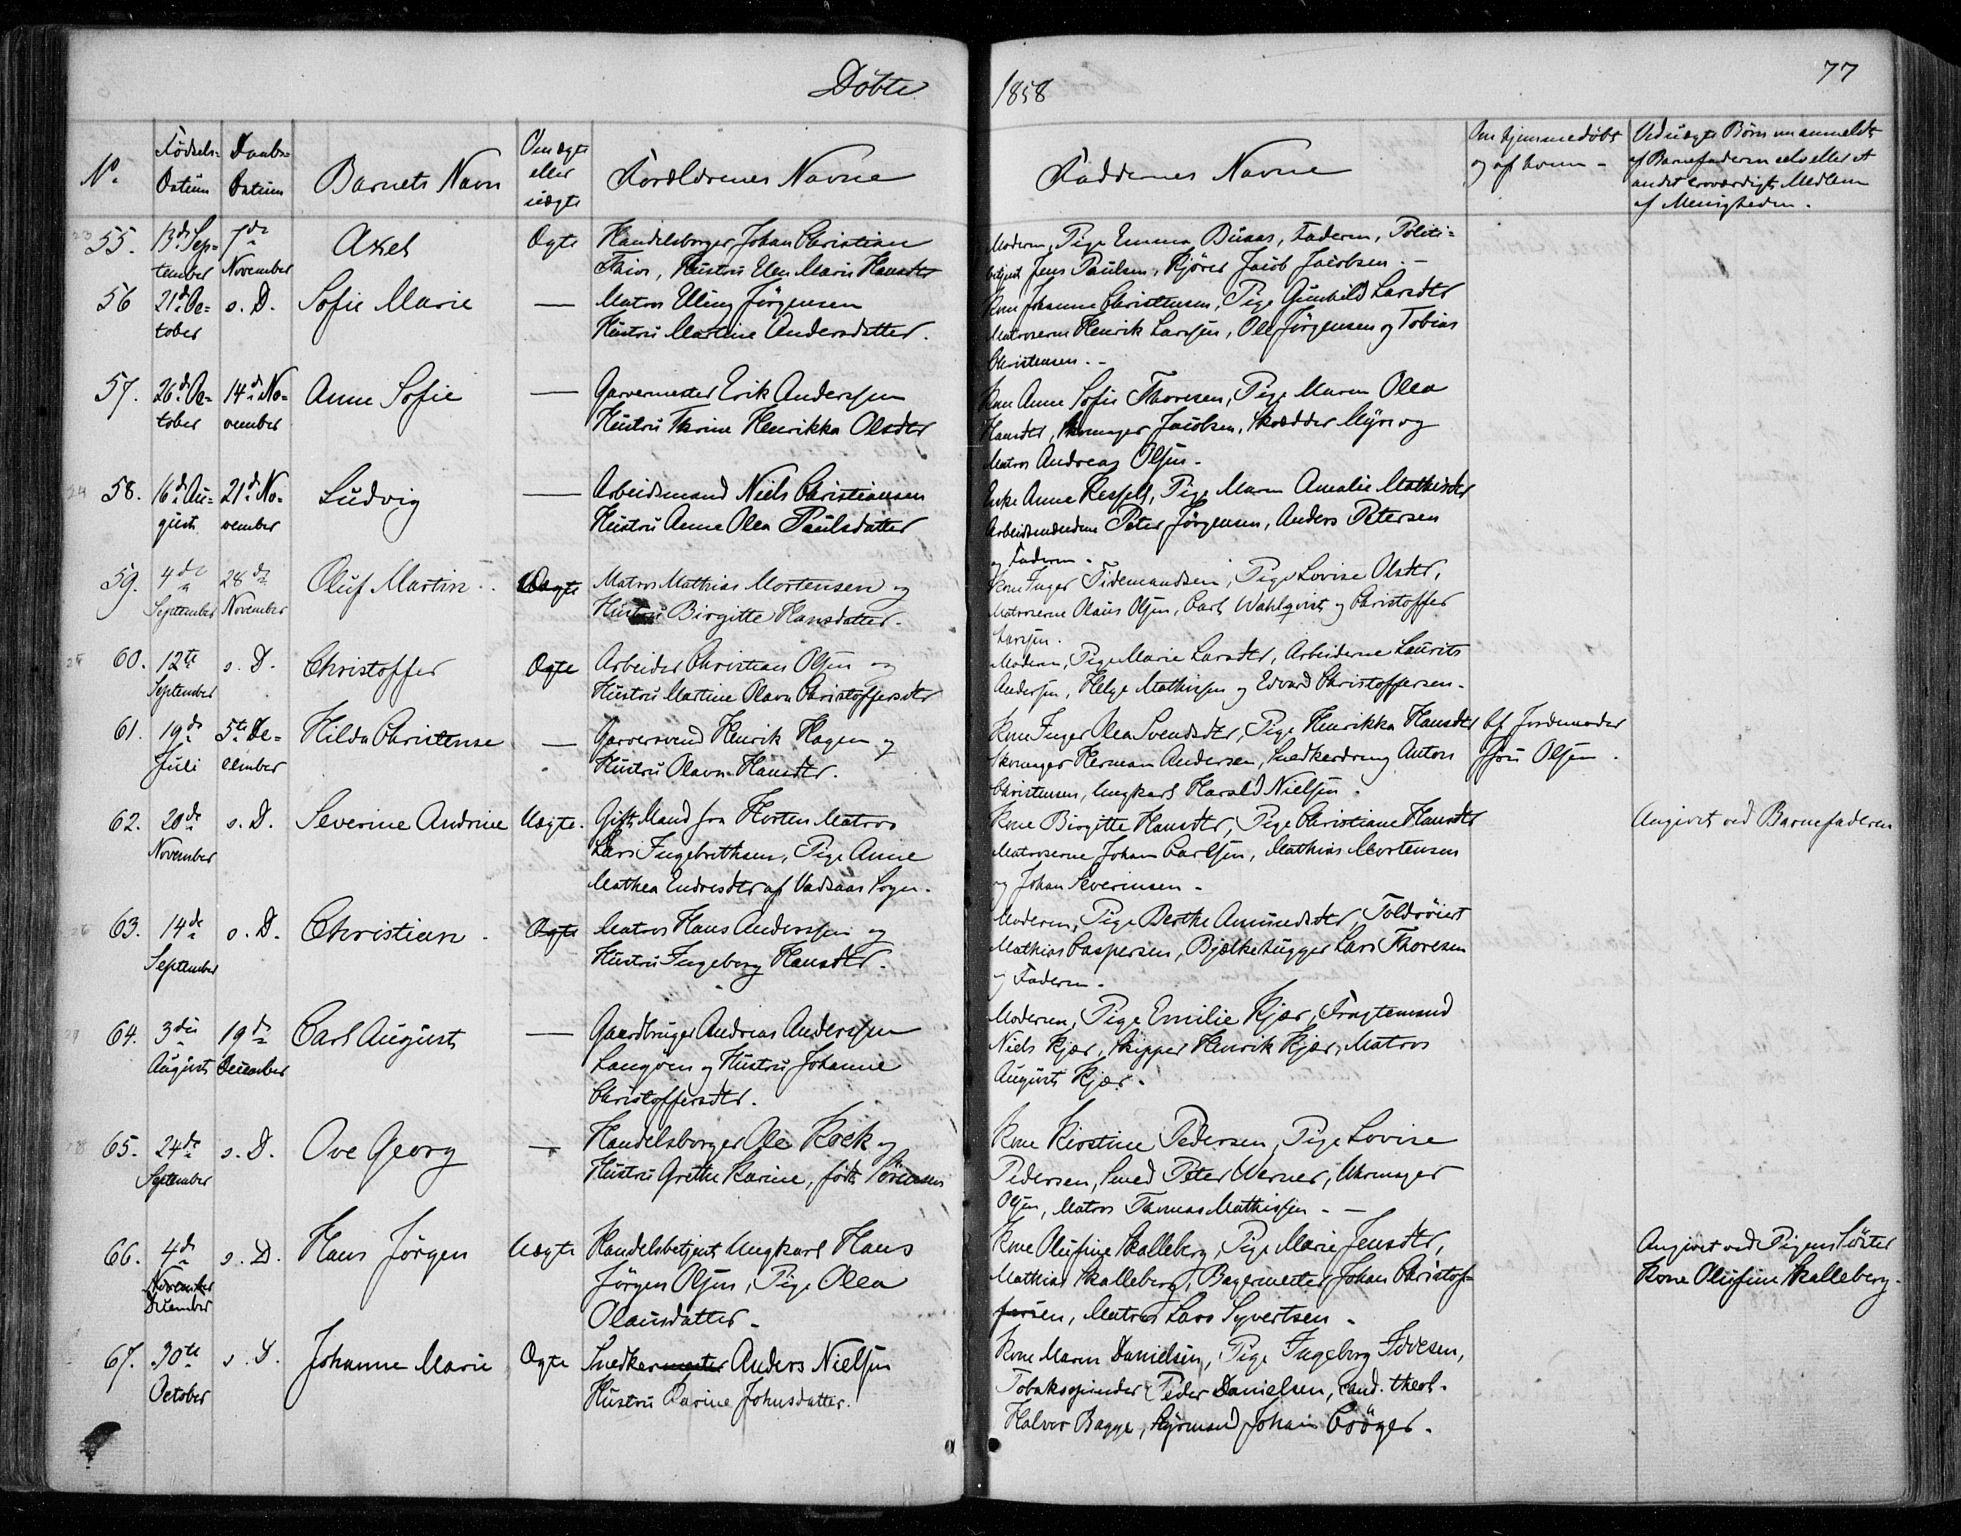 Døbte
1858
77
No.
Fødsels-
Datum
Daabs-
Datum
Barnets Navn
Om ægte
eller
uægte
Forældrenes Navne
Faddernes Navne
Om hjemmedøbt
og af hvem -
Ved uægte Børn om anmeldt
af Barnefaderen selv eller et
andet troværdigt Medlem
af Menigheden.
55. 13de Sep- 7de Axel Ægte Handelsborger Johan Christian
tember November Hustru Ellen Marie Hansdtr
Moderen, Pige Emma Buaas, Faderen, Politi-
betjent Jens Paulsen, Kjører Jacob Jacobsen. -
56 21de Oc- s. D. Sofie Marie — Matros Elling Jörgensen
tober Hustru Martine Andersdatter.
Kone Johanne Christensen, Pige Gunhild Larsdtr
Matroserne Henrik Larssen, Ole Jörgensen og Tobias
Christensen. -
57. 26de Oc- 14de No- Anne Sofie — Garvermester Erik Anderssen
tober vember Hustru Thrine Henrikka Olsdtr
Kone Anne Sofie Thoresen, Pige Maren Olea
Hansdtr, Skomager Jacobsen, Skrædder Myre og
Matros Andreas Olsen -
58. 16de Au- 21de No- Ludvig — Arbeidsmand Niels Christiansen
gust vember Hustru Anne Olea Paulsdatter
Enke Anne Kessel, Pige Maren Amalie Mathisdtr
Arbeidsmændene Peter Jörgensen, Anders Petersen
og Faderen -
59. 4de 28de Oluf Martin. Ægte Matros Mathias Mortensen og
September November Hustru Birgitte Hansdatter.
Kone Inger Tidemandsen, Pige Lovise Olsdtr,
Matroserne Olaus Olsen, Carl Wahlqvist og Christoffer
Larssen.
60. 12te s. D. Christoffer Ægte Arbeider Christian Olsen og
September Hustru Martine Olava Christoffersdtr
Moderen, Pige Marie Larsdtr, Arbeiderne Laurits
Andersen, Helge Mathissen og Edvard Christoffersen.
61. 19de 5te De- Hilda Christense — Garversvend Henrik Hagen og
Juli cember Hustru Olava Hansdtr.
Kone Inger Olea Svendsdtr, Pige Henrikka Hansdtr
Skomager Herman Andersen, Snedkerdreng Anton
Christensen, Ungkarl Harald Nielsen.
Af Jordemoder
Olsen.
62. 20de s. D. Severine Andrine Uægte. Gift Mand fra Horten Matros
November Lars Ingebrethsen, Pige Anne
Mathea Endresdtr af Sogn.
Kone Birgitte Hansdtr, Pige Christiane Hansdtr
Matroserne Johan Carlsen, Mathias Mortensen
og Johan Severinsen -
Angivet ved Barnefaderen
63. 14de s. D. Christian Ægte Matros Hans Anderssen og
September Hustru Ingeborg Hansdtr.
Moderen, Pige Berthe Amundsdtr, Toldrøiert
Mathias Caspersen, Bjælkehugger Lars Thoresen
og Faderen.
64. 3die 19de Carl August — Gaardbruger Andreas Anderssen
August December Langöen og Hustru Johanne
Christoffersdtr.
Moderen, Pige Emilie Kjær, Fragtemand
Niels Kjær, Skipper Henrik Kjær, Matros
August Kjær.
65. 24de s. D. Ove Georg — Handelsborger Ole Kock og
September Hustru Grethe Karine, födt Sörensen
Kone Kirstine Pedersen, Pige Lovise
Pedersen, Smed Peter Werner, Uhrmager
Olsen, Matros Thomas Mathissen - —
66. 4de s. D. Hans Jörgen Uægte Handelsbetjent Ungkarl Hans
November
December
Jörgen Olsen, Pige Olea
Olausdatter -
Kone Olufine Skalleberg, Pige Marie Jensdtr,
Mathias Skalleberg, Bagermester Johan Christof-
fersen, Matros Lars Syvertsen -
Angivet ved Pigens Söster
Kone Olufine Skalleberg.
67. 30te s. D. Johanne Marie Ægte Snedkermester Anders Nielsen
October Hustru Karine Johnsdatter.
Kone Maren Danielsen, Pige Ingeborg Iversen,
Tobakspinder Peder Danielsen, cand. theol.
Halvor Bagge, Styrmand Johan Cröger.